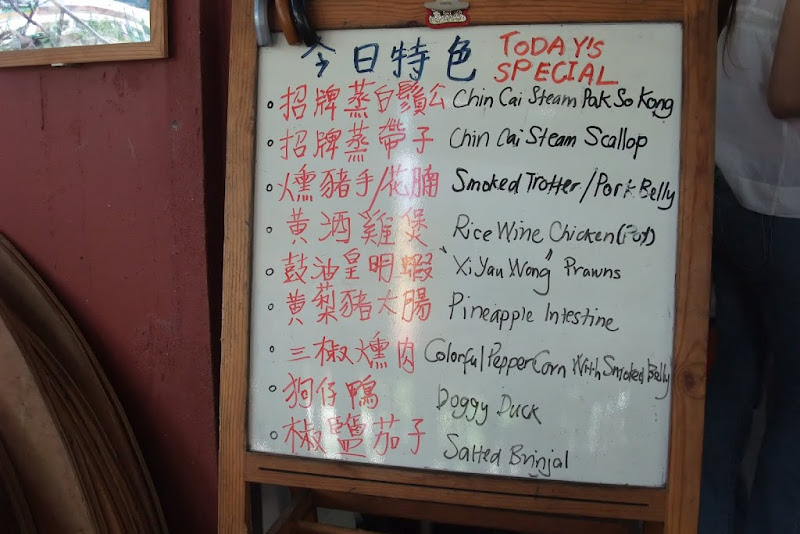 今日特色 TODAY'S SPECIAL
招牌蒸白鬚公 Chin Cai Steam Pak So Kong
招牌蒸帶子 Chin Cai Steam Scallop
燻豬手/花腩 Smoked Trotter/Pork Belly
黃酒雞煲 Rice Wine Chicken (Pot)
鼓油皇明蝦 "Xi Yau Wong" Prawns
黃梨豬大腸 Pineapple Intestine
三椒燻肉 Colorful PepperCorn With Smoked Belly
狗仔鴨 Doggy Duck
椒鹽茄子 Salted Brinjal